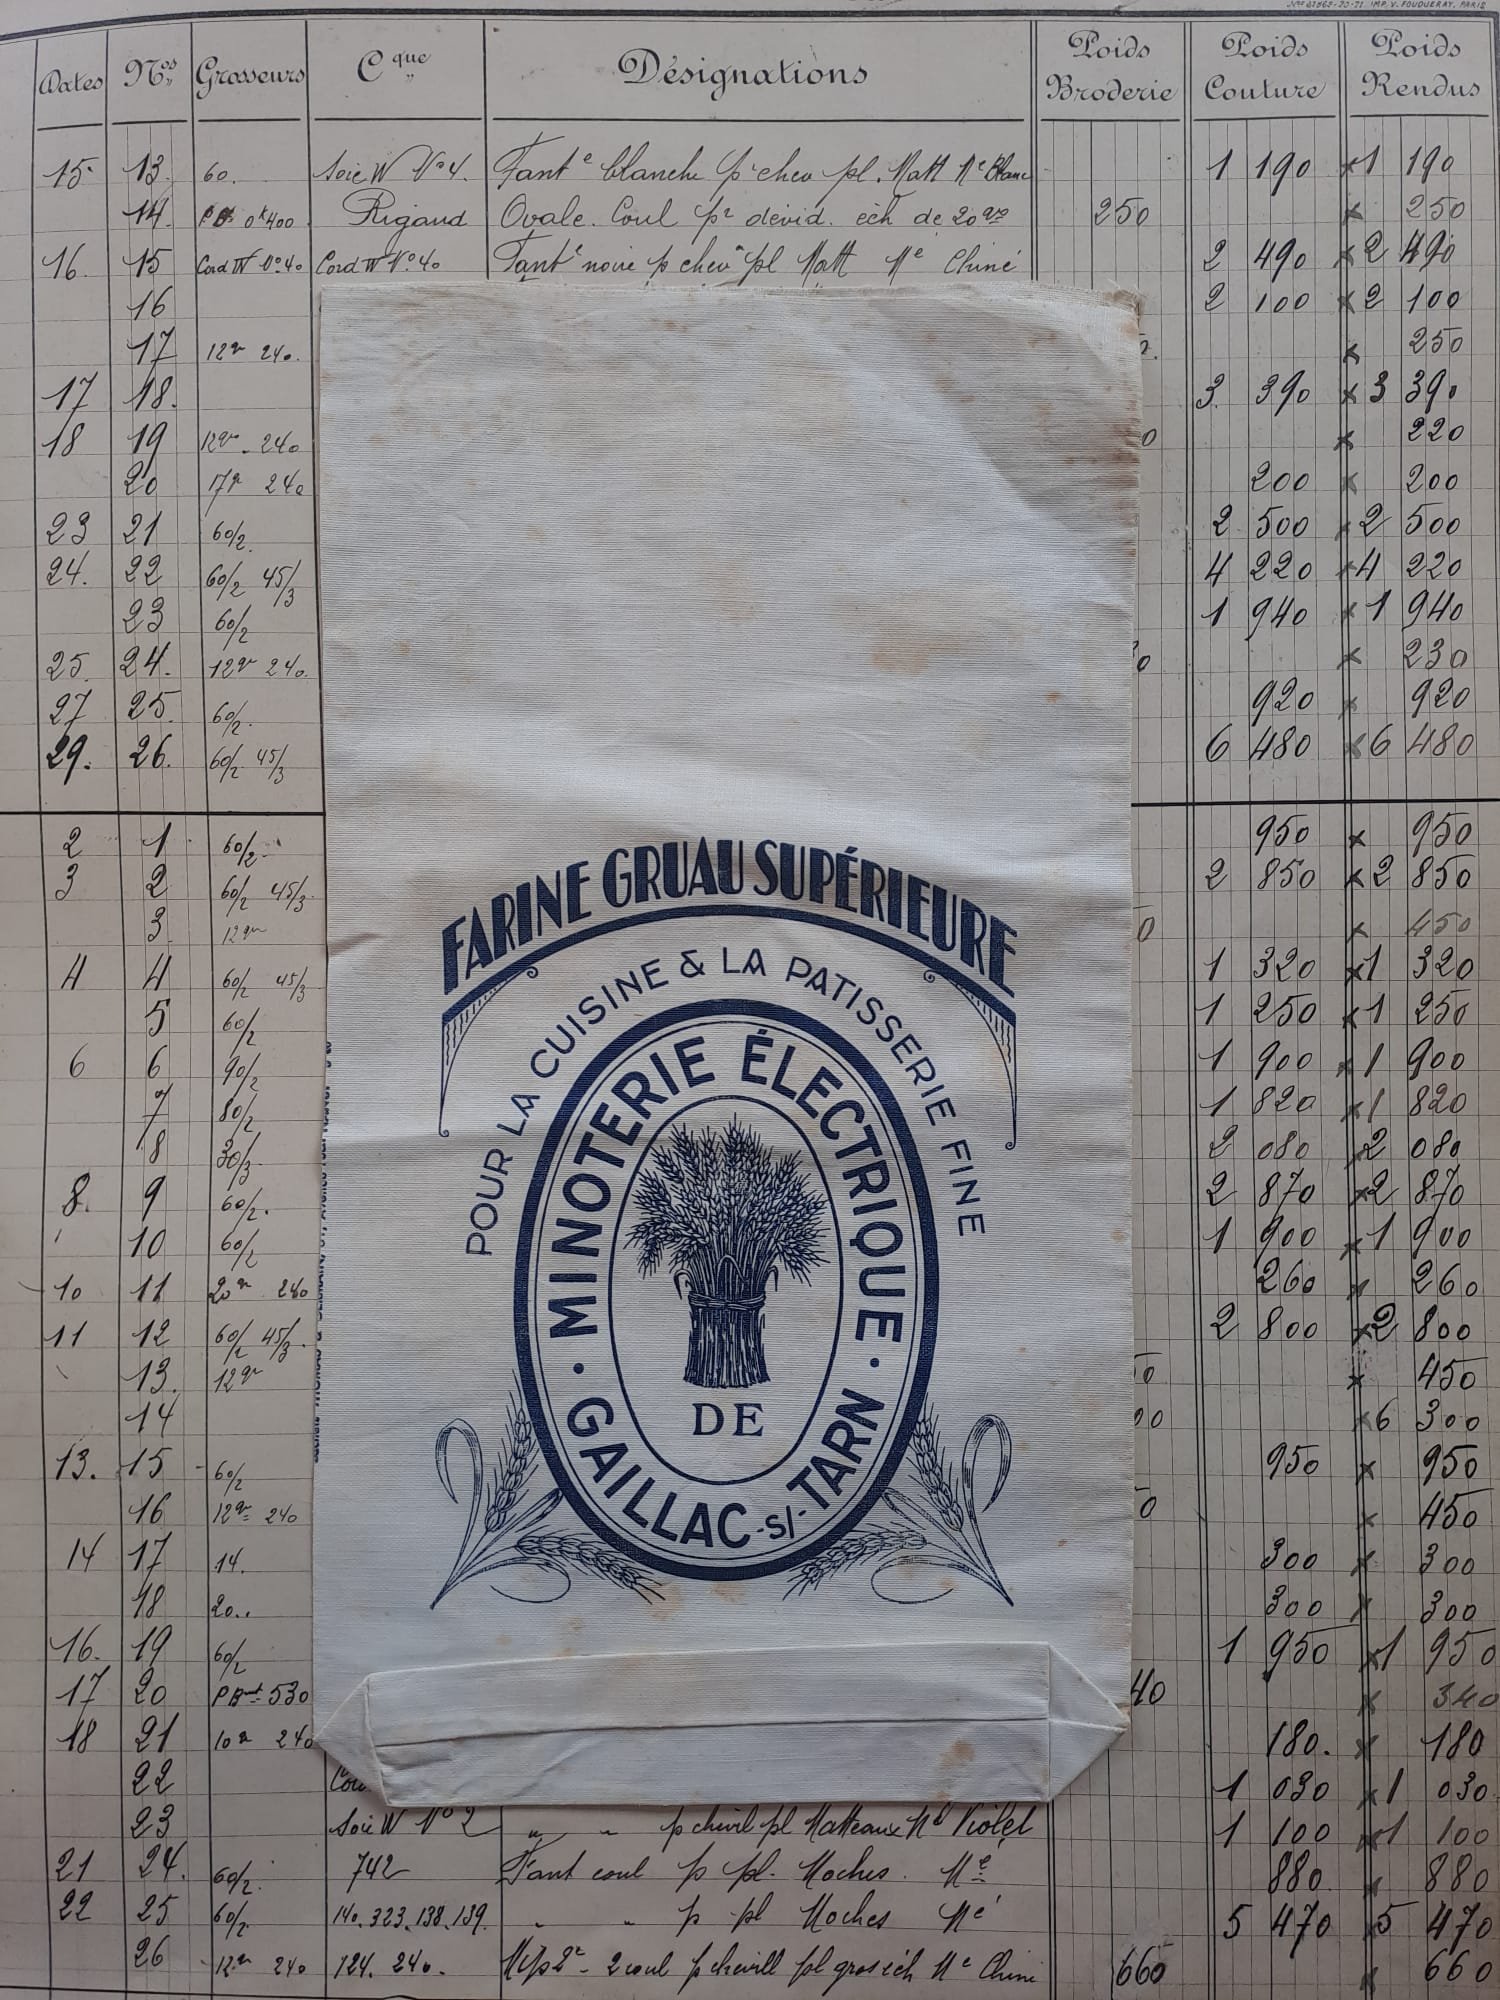 IMP. V. FOUQUERAY, PARIS
Dates Nos Grosseurs Cque Désignations Poids Broderie Poids Couture Poids Rendus
15 13 60. Soie W No 4. Fante blanche pr chev pl. Matt Ne Blanc 1 190 x 1 190
14. 0k400 Rigaud Ovale. Coul pr dévid. éch de 20 250 x 250
16. 15 Cord W No 40 Cord W No 40 Fante noire p chev pl Matt Ne Chiné 2 490 x 2 490
16 2 100 x 2 100
17 12 240. x 250
17 18. 3. 390 x 3 390
18 19 12 240 0 x 220
20 17 240 200 x 200
23 21 60/2. 2 500 x 2 500
24. 22 60/2 45/3 4 220 x 4 220
23 60/2 1 940 x 1 940
25. 24. 12 240. 0 x 230
27 25. 60/2. 920 x 920
29. 26. 60/2 45/3 6 480 x 6 480
2 1 60/2 950 x 950
3 2 60/2 45/3 2 850 x 2 850
3 12 0 x 450
4 4 60/2 45/3 1 320 x 1 320
5 60/2 1 250 x 1 250
6 6 90/2 1 900 x 1 900
7 80/2 1 820 x 1 820
8 30/3 2 080 x 2 080
8. 9 60/2. 2 870 x 2 870
10 60/2 1 900 x 1 900
10 11 20 240 260 x 260
11 12 60/2 45/3 2 800 x 2 800
13. 12 0 x 450
14 00 x 6 300
13. 15 60/2 950 x 950
16 12 240 0 x 450
14 17 14. 300 x 300
18 20.. 300 x 300
16. 19 60/2 1 950 x 1 950
17 20 530 40 x 340
18 21 10 240 180. x 180
22 1 030 x 1 030
23 Soie W No 2 " " p chevil pl Matteaux Ne Violet 1 100 x 1 100
21 24. 60/2. 742 Fant coul p pl. Moches. Ne 880 x 880
22 25 60/2. 140. 323. 138. 139. " " p pl Moches Ne 5 470 x 5 470
26 12 240 124. 240. 2 coul p chevill pl gros éch Ne Chiné 660 x 660
FARINE GRUAU SUPÉRIEURE
POUR LA CUISINE & LA PATISSERIE FINE
MINOTERIE ÉLECTRIQUE
DE
GAILLAC-S/-TARN